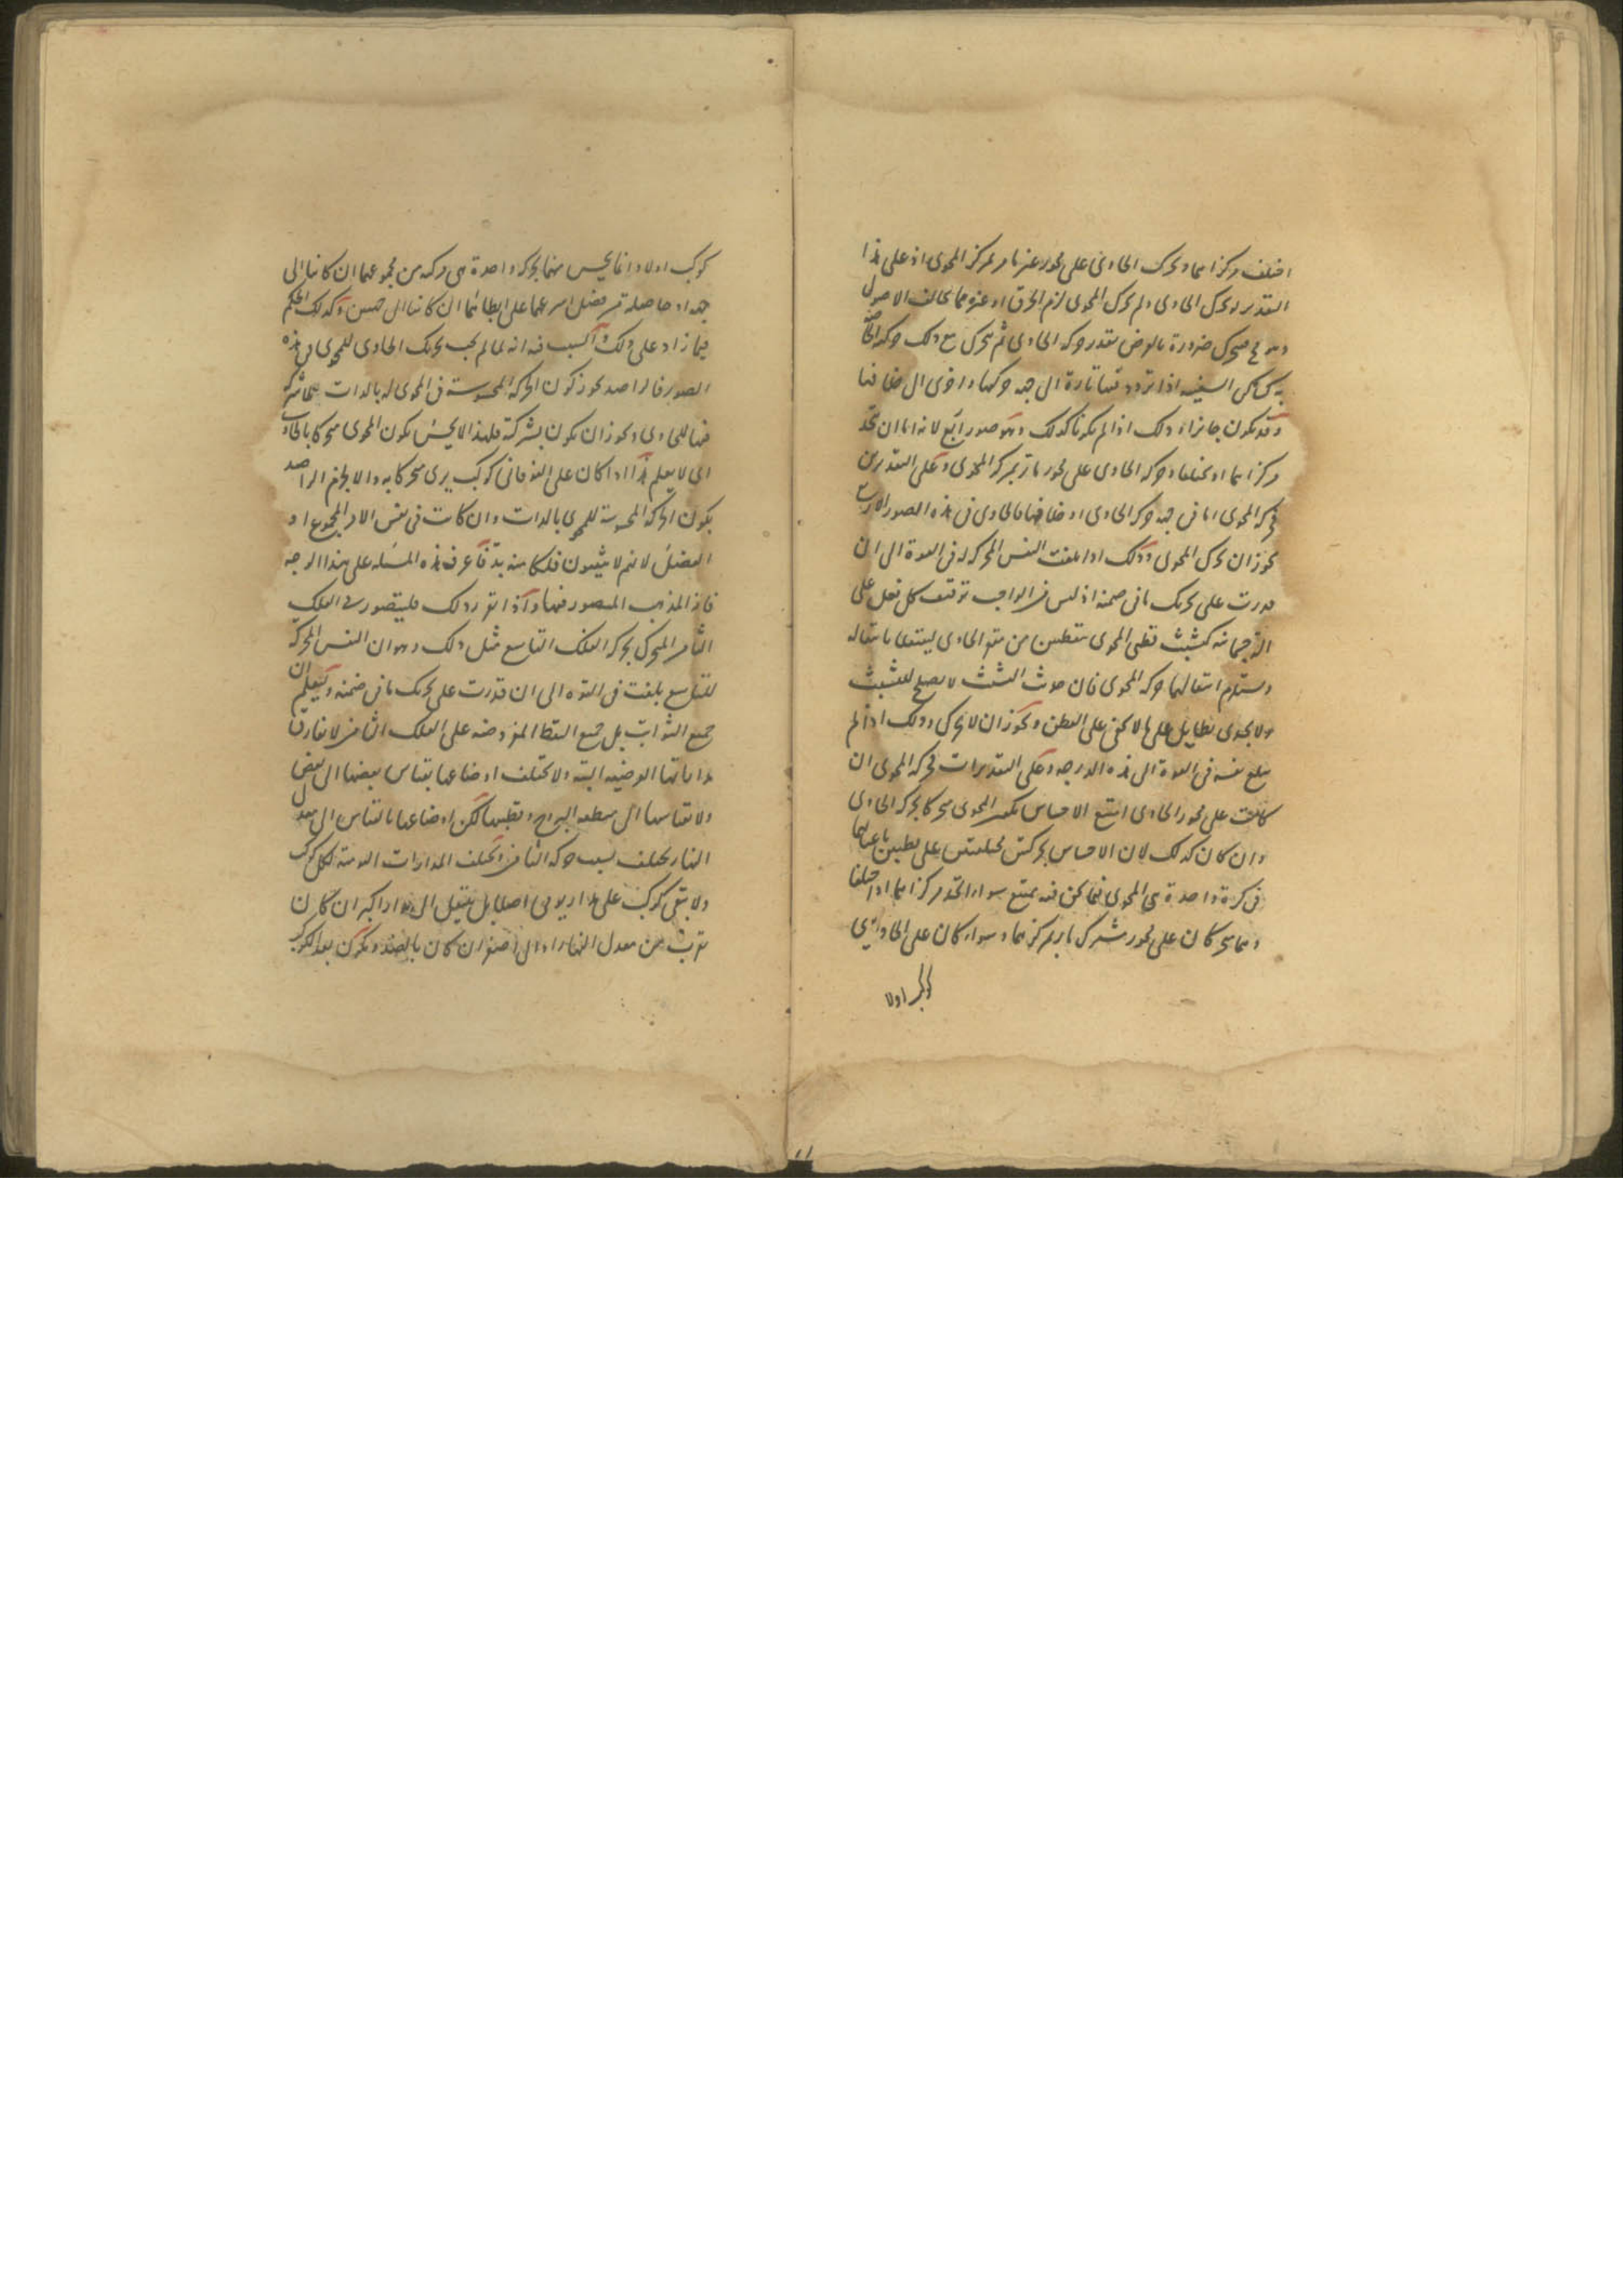 اختلف مركزاهما وتحرك الحاوى على محور غير مار بمركز المحوى اذ على هذا
التقدير لو تحرك الحاوى ولم يتحرك المحوى لزم الخرق او غيره مما يخالف الاصول
متحرك ضرورة بالعرض بقدر حركة الحاوى ثم يتحرك مع ذلك حركة الخاصة
السفينة اذا تردد فيها تارة الى جهة حركتها واخرى الى خلافها
وقد يكون جائزا وذلك اذا لم يكونا كذلك وله صور اربع لانه اما ان يتحد
مركزاهما او يختلفا وحركة الحاوى على محور مار بمركز المحوى وعلى التقديرين
فحركة المحوى اما فى جهة حركة الحاوى او خلافها فالحاوى فى هذه الصور الاربع
يجوز ان يحرك المحوى وذلك اذا بلغت النفس المحركة له فى القوة الى ان
قدرت على تحريك ما فى ضمنه اذ ليس من الواجب توقف كل فعل على
كتشبث قطبى المحوى بنقطتين من مقعر الحاوى لينتقلا بانتقاله
ويستلزم انتقالهما حركة المحوى فان حديث التشبث لا يصلح للتشبث
ولا يجدى بطايل على ما لا يخفى على الفطن ويجوز ان لا يحرك وذلك اذا لم
يبلغ نفسه فى القوة الى هذه الدرجة وعلى التقديرات فحركة المحوى ان
كانت على محور الحاوى امتنع الاحساس بكون المحوى متحركا بحركة الحاوى
وان كان كذلك لان الاحساس بحركتين مختلفتين على قطبين باعيانهما
فى كرة واحدة هى المحوى فيما نحن فيه ممتنع سواء اتحد مركزاهما او اختلفا
وهما متحركان على محور مشترك مار بمركزهما وسواء كان على الحاوى
كوكب اولا
كوكب اولا وانما يحس منهما بحركة واحدة هى مركبة من مجموعهما ان كانتا الى
جهة او حاصلة من فضل اسرعهما على ابطائهما ان كانتا الى جهتين وكذلك الحكم
فيما زاد على ذلك والسبب فيه انه لما لم يجب تحريك الحاوى للمحوى فى هذه
الصور فالراصد يجوز كون الحركة المحسوسة فى المحوى له بالذات بلا شركة
فيها للحاوى ويجوز ان يكون بشركته فلهذا لا يحس بكون المحوى متحركا بالحاوى
اى لا يعلم هذا اذا كان على الفوقانى كوكب يرى متحركا به والا يجزم الراصد
بكون الحركة المحسوسة للمحوى بالذات وان كانت فى نفس الامر المجموع او
الفضل لانهم لا يثبتون فلكا منه بد فاعرف هذه المسئلة على هذا الوجه
فانه المذهب المنصور فيها واذا تقرر ذلك فليتصور فى الفلك
الثامن المتحرك بحركة الفلك التاسع مثل ذلك وهو ان النفس المحركة
للتاسع بلغت فى القوة الى ان قدرت على تحريك ما فى ضمنه وليعلم ان
جميع الثوابت بل جميع النقط المفروضة على الفلك الثامن لا تفارق
مداراتها العرضية البتة ولا تختلف اوضاعها بقياس بعضها الى بعض
ولا بقياسها الى منطقة البروج وقطبيها لكن اوضاعها بالقياس الى معدل
النهار يختلف بسبب حركة الثامن فيختلف المدارات اليومية لكل كوكب
ولا يبقى كوكب على مدار يومى اصلا بل ينتقل الى مدار اكبر ان كان
يقرب من معدل النهار او الى اصغر ان كان بالضد ويكون بعد الكوكب